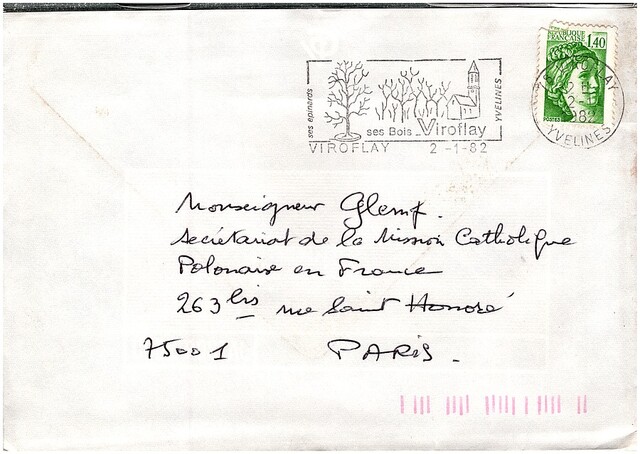 RÉPUBLIQUE
FRANÇAISE 1,40
POSTES
VIROFLAY
2-1
1982
YVELINES
ses épinards
ses Bois _ Viroflay
YVELINES
VIROFLAY 2-1-82
Monseigneur
Secrétariat de la Mission Catholique
Polonaise en France
263 bis rue Saint Honoré
75001 PARIS.